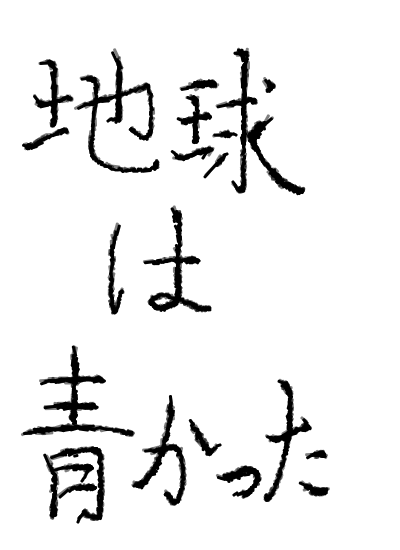 地球
は
青かった